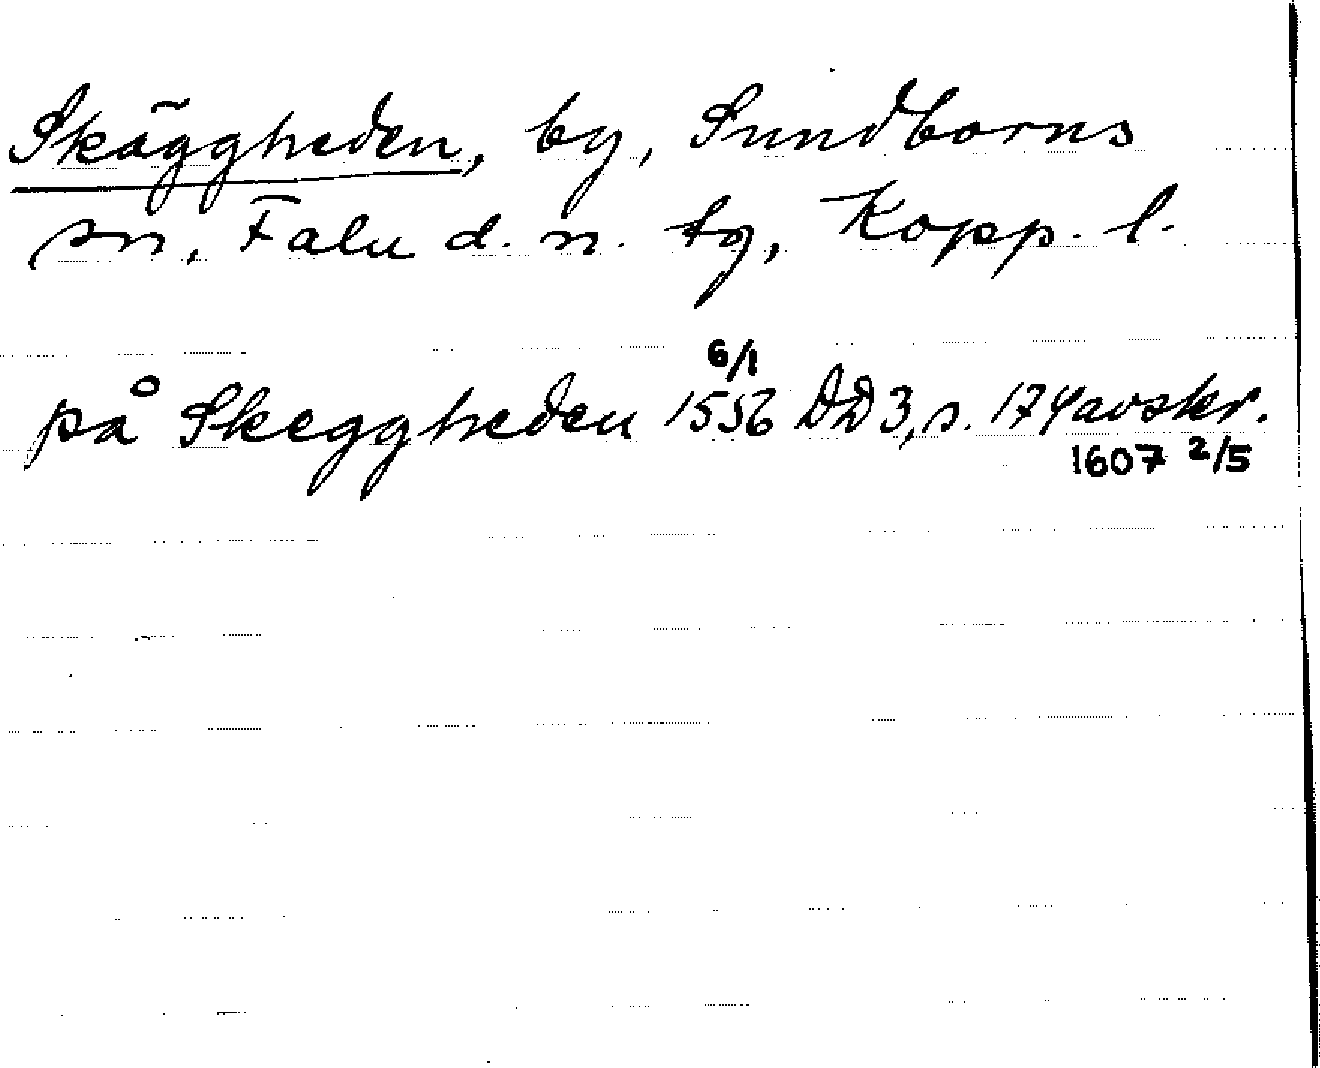 Skäggheden, by, Sundborns
sn, Falu d. n. tg, Kopp. l.
6/1
på Skeggheden 1556 DD3, s. 174 avskr.
1607 2/5